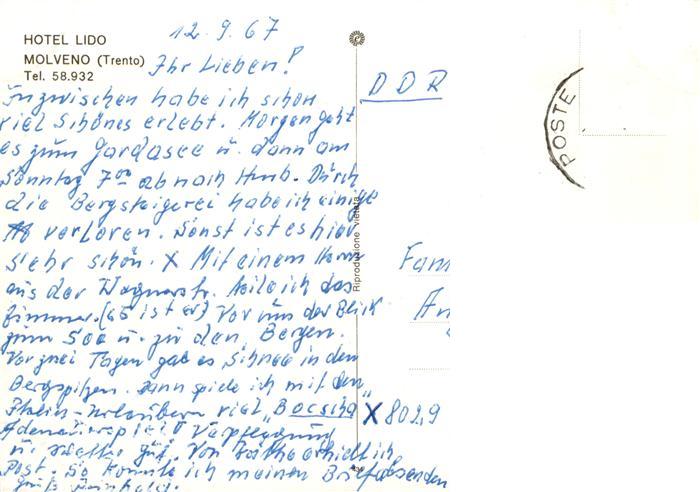 12.9.67
HOTEL LIDO
MOLVENO (Trento)
Tel. 58.932
Ihr Lieben!
Inzwischen habe ich schon
viel Schönes erlebt. Morgen geht
es zum Gardasee u. dann am
Sonntag 7⁰⁰ ab nach Hmb. Durch
die Bergsteigerei habe ich einige
verloren. Sonst ist es hier
sehr schön. X Mit einem
aus der Wagnerstr. teile ich das
Zimmer. Vor uns der Blick
zum See u. zu den Bergen.
Vor zwei Tagen gab es Schnee in den
Bergspitzen. Dann spiele ich mit den
Italien-Urlaubern viel „Boccia"
Verpflegung
u. gut. Von erhielt ich
Post. So konnte ich meinen Brief absenden
DDR
POSTE
Riproduzione vietata
Fam
An
X 8029